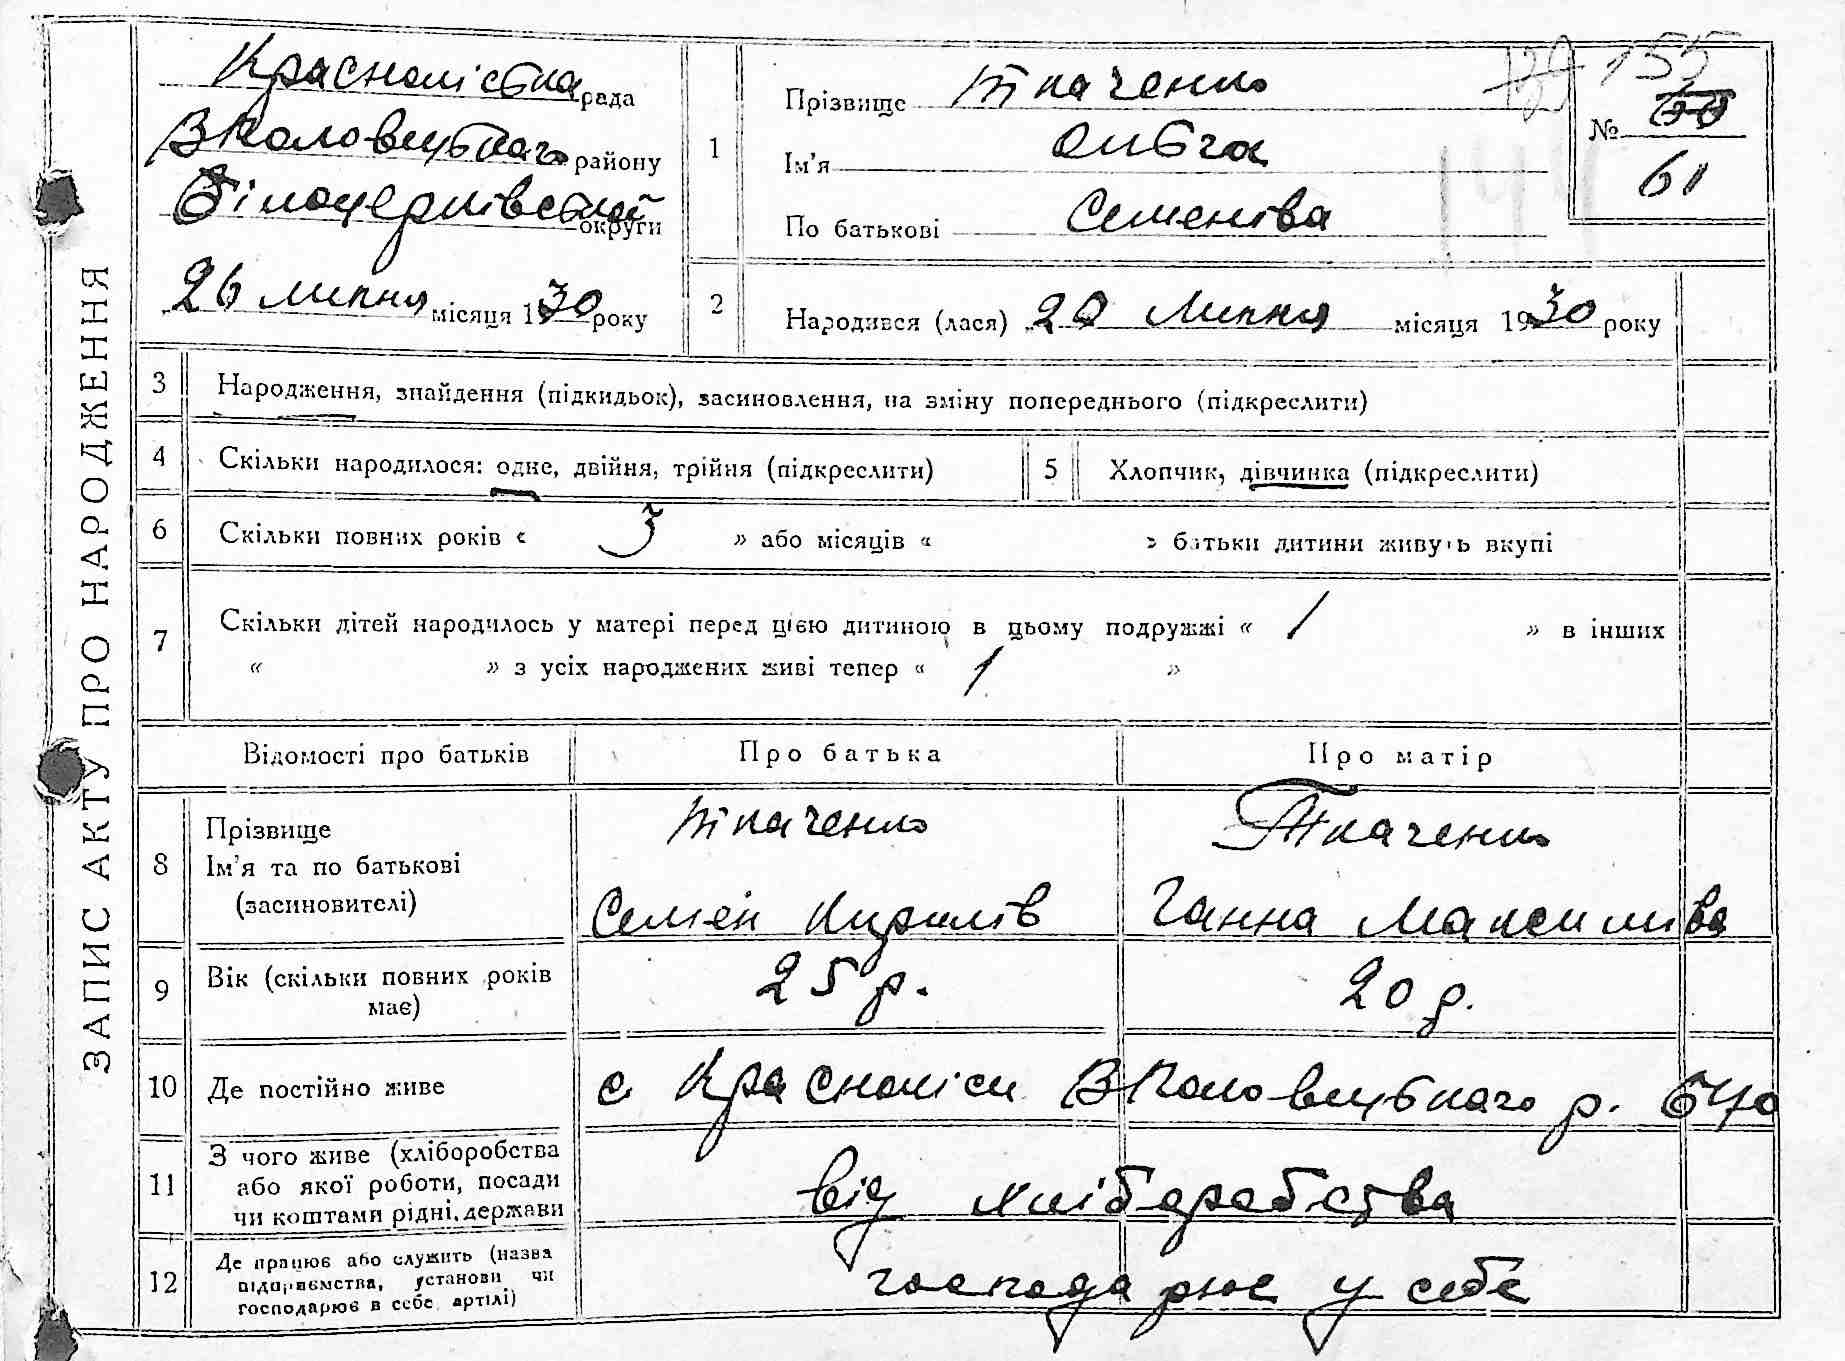 ЗАПИС АКТУ ПРО НАРОДЖЕННЯ
Краснолісьна рада
ВПоловецького району
Білоцерківської округи
26 липня місяця 1930 року
1
Прізвище Ткаченко
Ім'я Ольга
По батькові Семенівa
155
№ 60
61
144
2
Народився (лася) 20 Липня місяця 1930 року
3 Народження, знайдення (підкидьок), засиновлення, на зміну попереднього (підкреслити)
4 Скільки народилося: одне, двійня, трійня (підкреслити)
5 Хлопчик, дівчинка (підкреслити)
6 Скільки повних років « 3 » або місяців « » батьки дитини живуть вкупі
7 Скільки дітей народилось у матері перед цією дитиною в цьому подружжі « 1 » в інших
« » з усіх народжених живі тепер « 1 »
Відомості про батьків Про батька Про матір
8 Прізвище
Ім'я та по батькові
(засиновителі)
Ткаченко
Семен Кирилів
Ткаченко
Ганна Максимівa
9 Вік (скільки повних років
має)
25 р.
20 р.
10 Де постійно живе с Красналіси ВПоловецького р. БЦО
11 З чого живе (хліборобства
або якої роботи, посади
чи коштами рідні, держави
від хліборобства
12 Де працює або служить (назва
підприємства, установи чи
господарює в себе, артілі)
господарює у себе